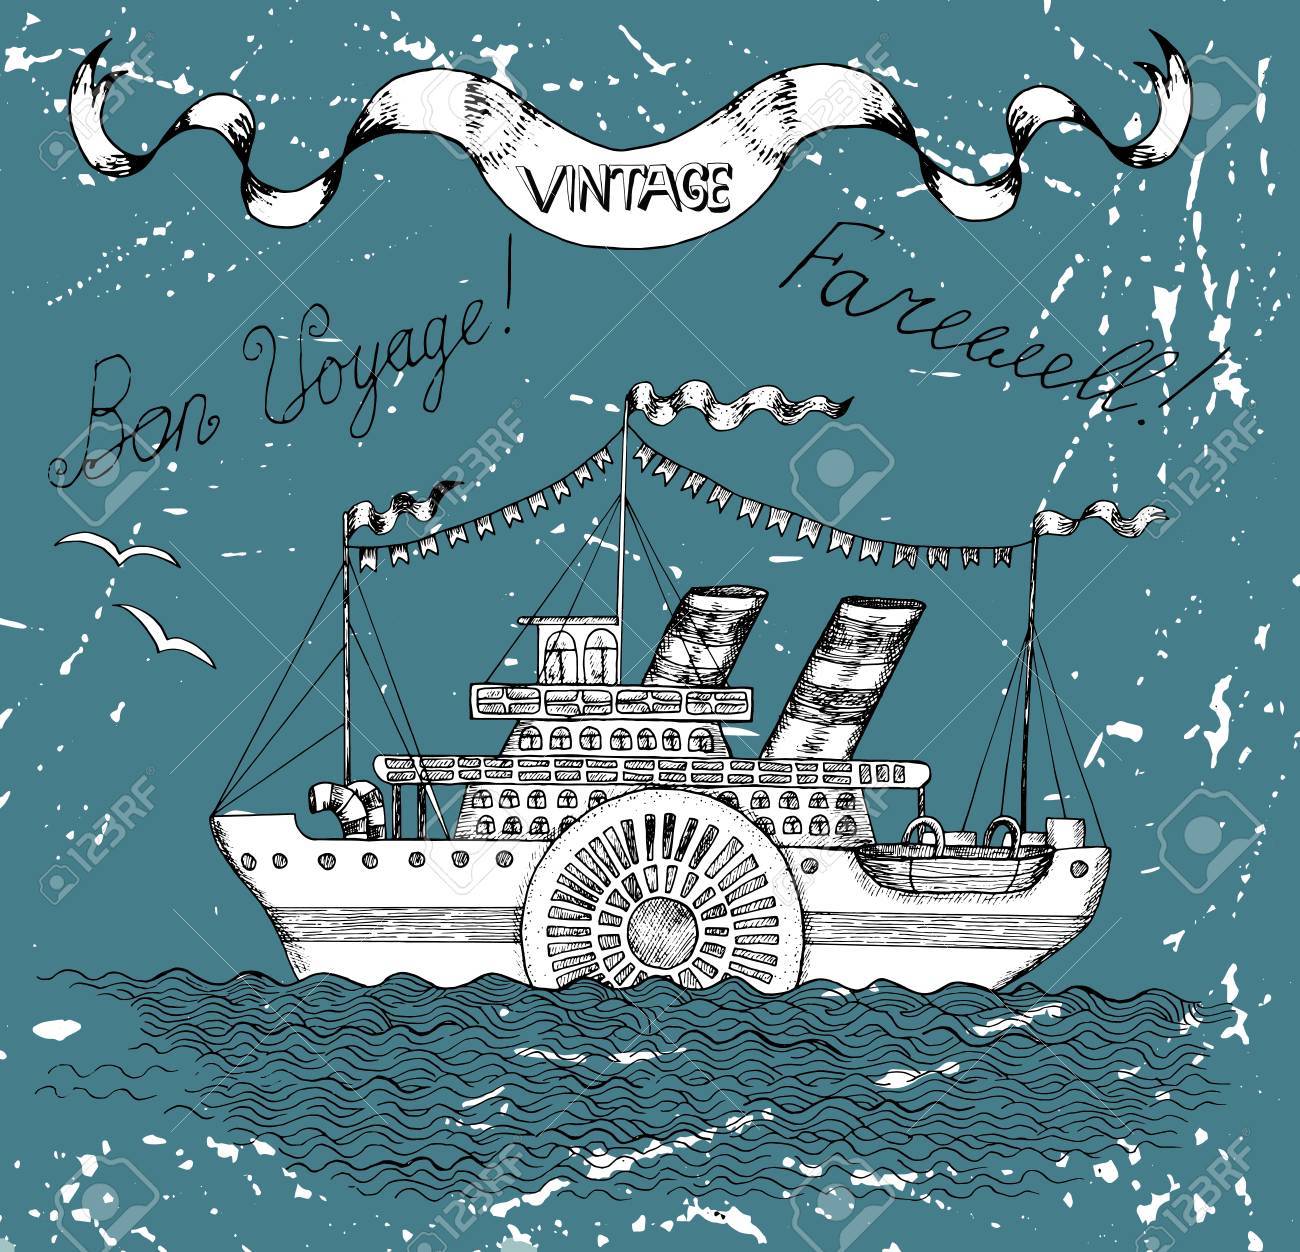 VINTAGE
Bon Voyage!
Farewell!
123RF